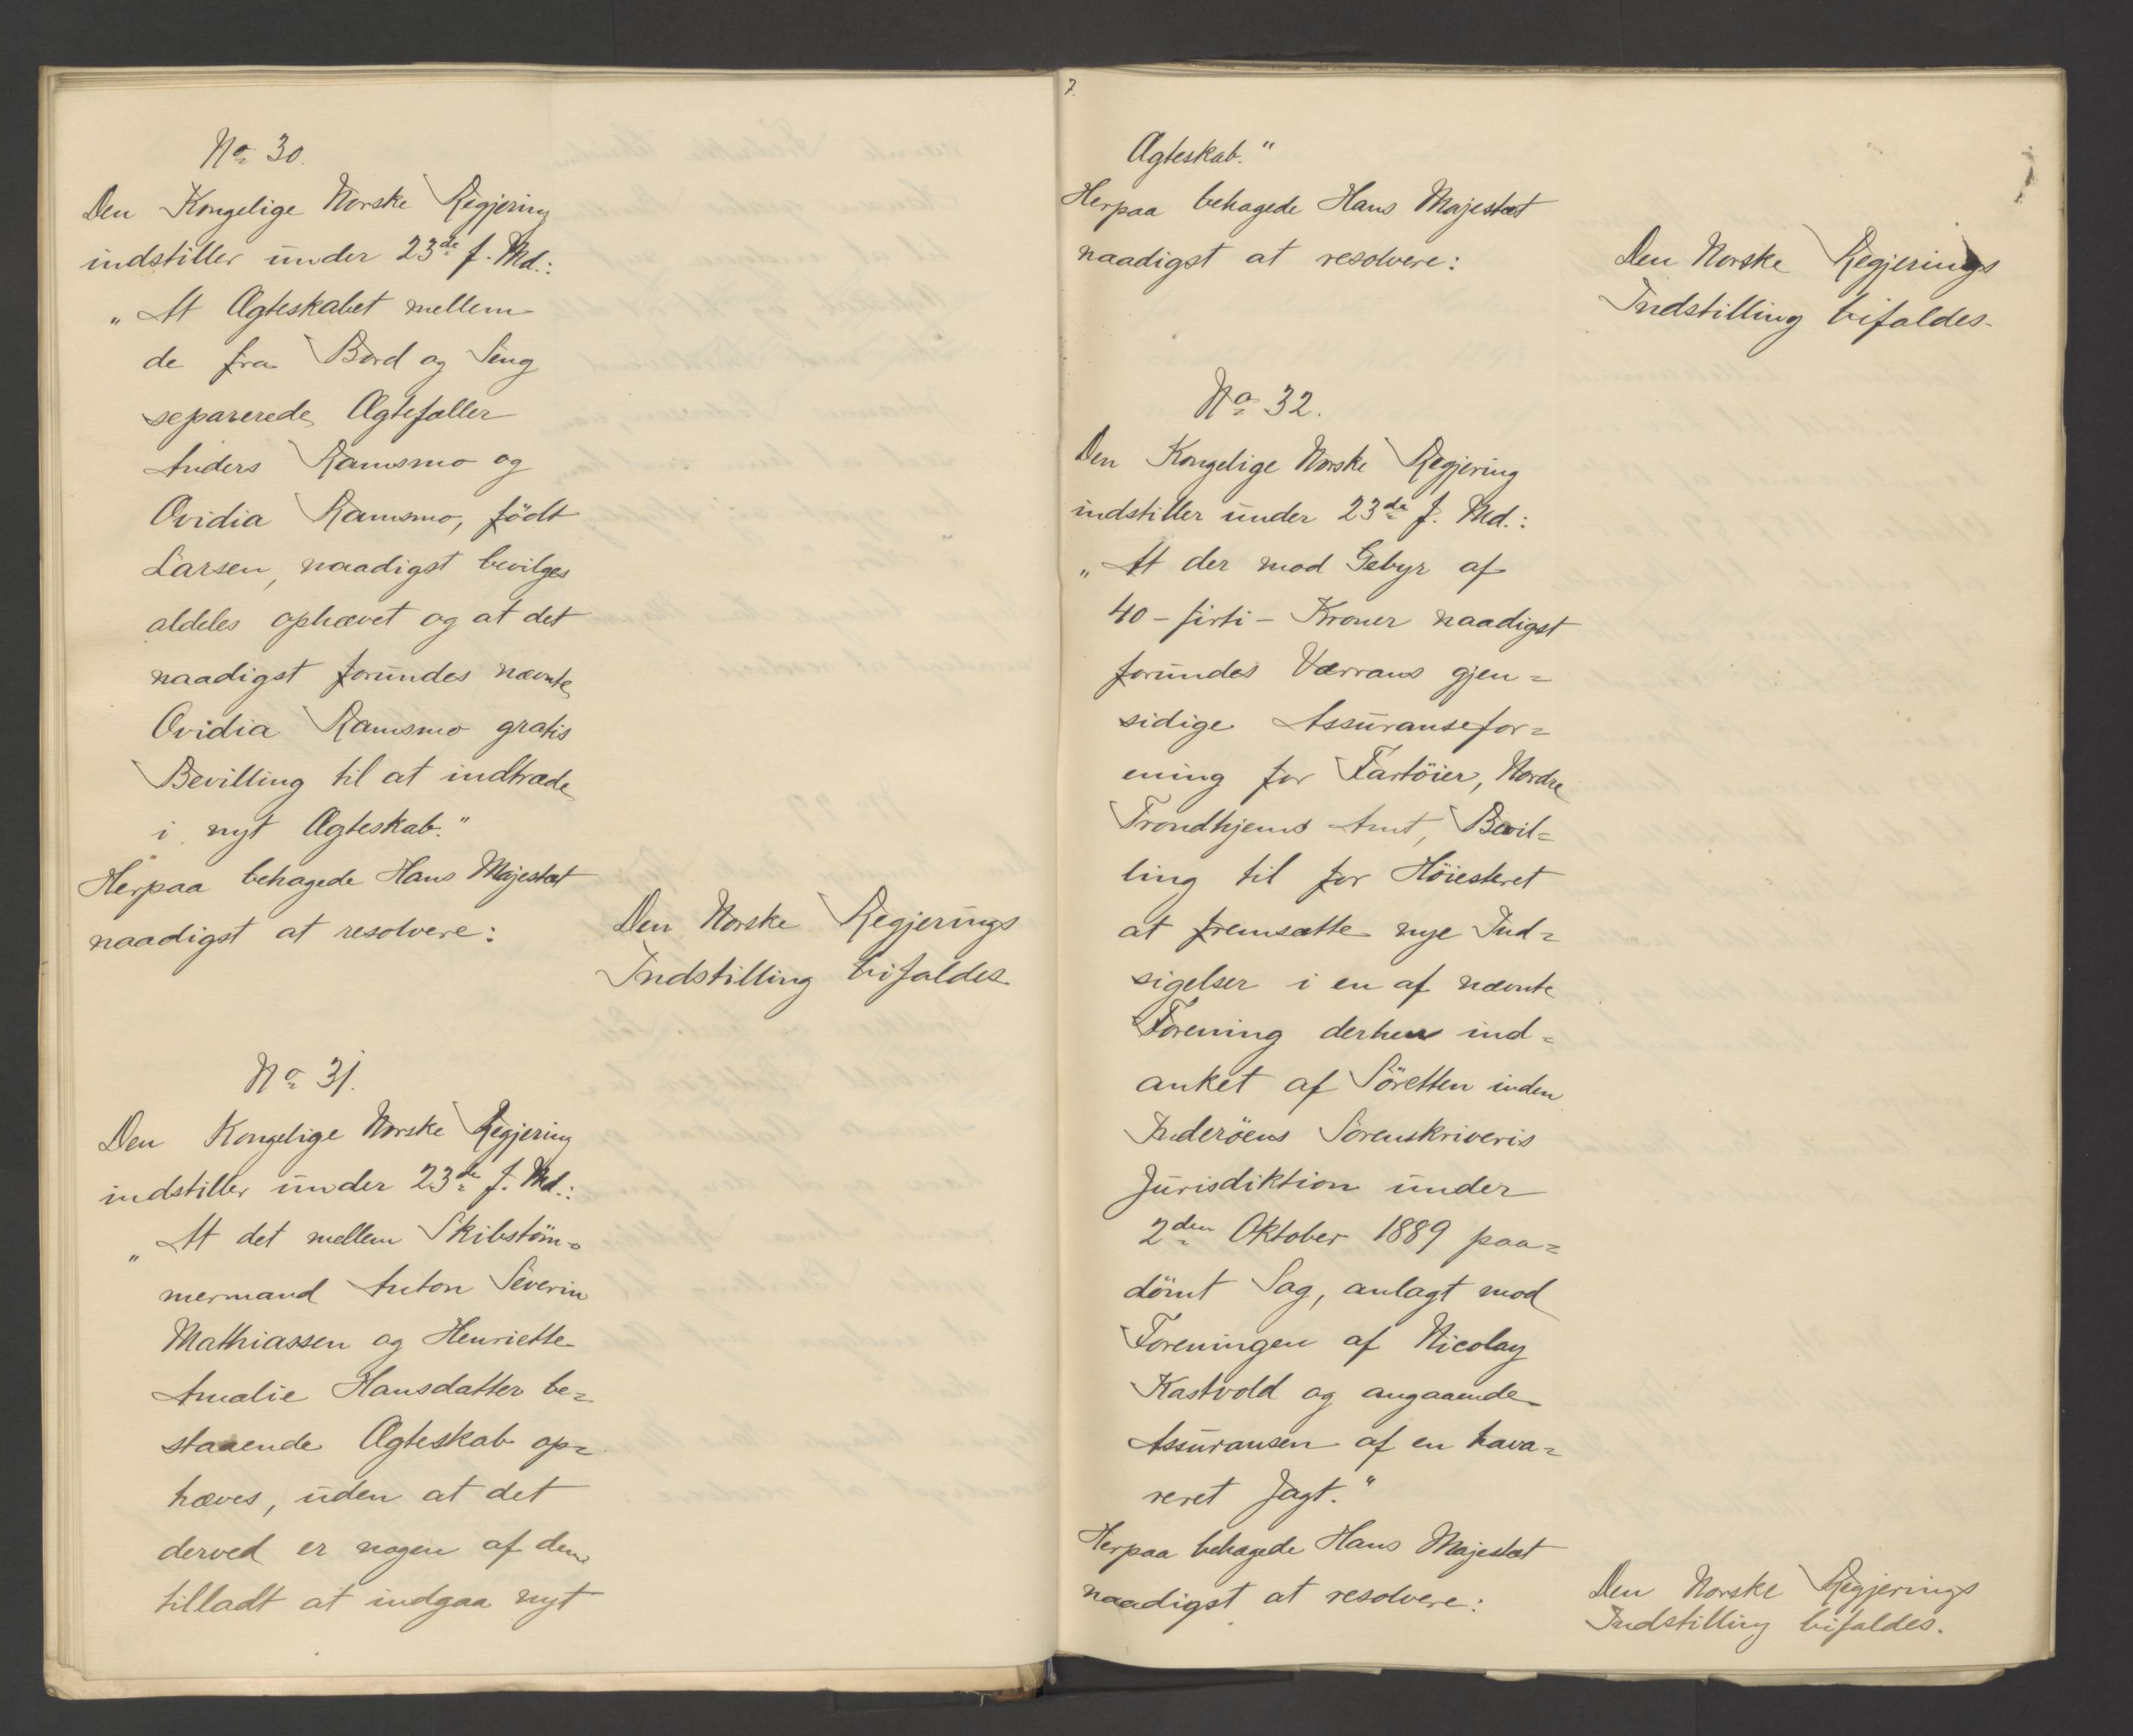 No 30.
Den Kongelige Norske Regjering
indstiller under 23de f. Md.:
„At Ægteskabet mellem
de fra Bord og Seng
separerede Ægtefæller
Anders Ramsmo og
Ovidia Ramsmo, født
Larsen, naadigst bevilges
aldeles ophævet og at det
naadigst forundes nævnte
Ovidia Ramsmo gratis
Bevilling til at indtræde
i nyt Ægteskab."
Herpaa behagede Hans Majestæt
naadigst at resolvere:
Den Norske Regjerings
Indstilling bifaldes
No 31.
Den Kongelige Norske Regjering
indstiller under 23de f. Md.:
„At det mellem Skibstöm=
mermand Anton Severin
Mathiassen og Henriette
Amalie Hansdatter be=
staaende Ægteskab op=
hæves, uden at det
derved er nogen af dem
tilladt at indgaa nyt
7.
Ægteskab."
Herpaa behagede Hans Majestæt
naadigst at resolvere:
Den Norske Regjerings
Indstilling bifaldes.
No 32.
Den Kongelige Norske Regjering
indstiller under 23de f. Md.:
„At der mod Gebyr af
40 - firti - Kroner naadigst
forundes Værrans gjen=
sidige Assuransefor=
ening for Fartöier, Nordre
Trondhjems Amt, Bevil=
ling til for Höiesteret
at fremsætte nye Ind=
sigelser i en af nævnte
Forening derhen ind=
anket af Söretten inden
Inderöens Sorenskriveris
Jurisdiktion under
2den Oktober 1889 paa=
dömt Sag, anlagt mod
Foreningen af Nicolay
Kastvold og angaaende
Assuransen af en hava=
reret Jagt."
Herpaa behagede Hans Majestæt
naadigst at resolvere:
Den Norske Regjerings
Indstilling bifaldes.